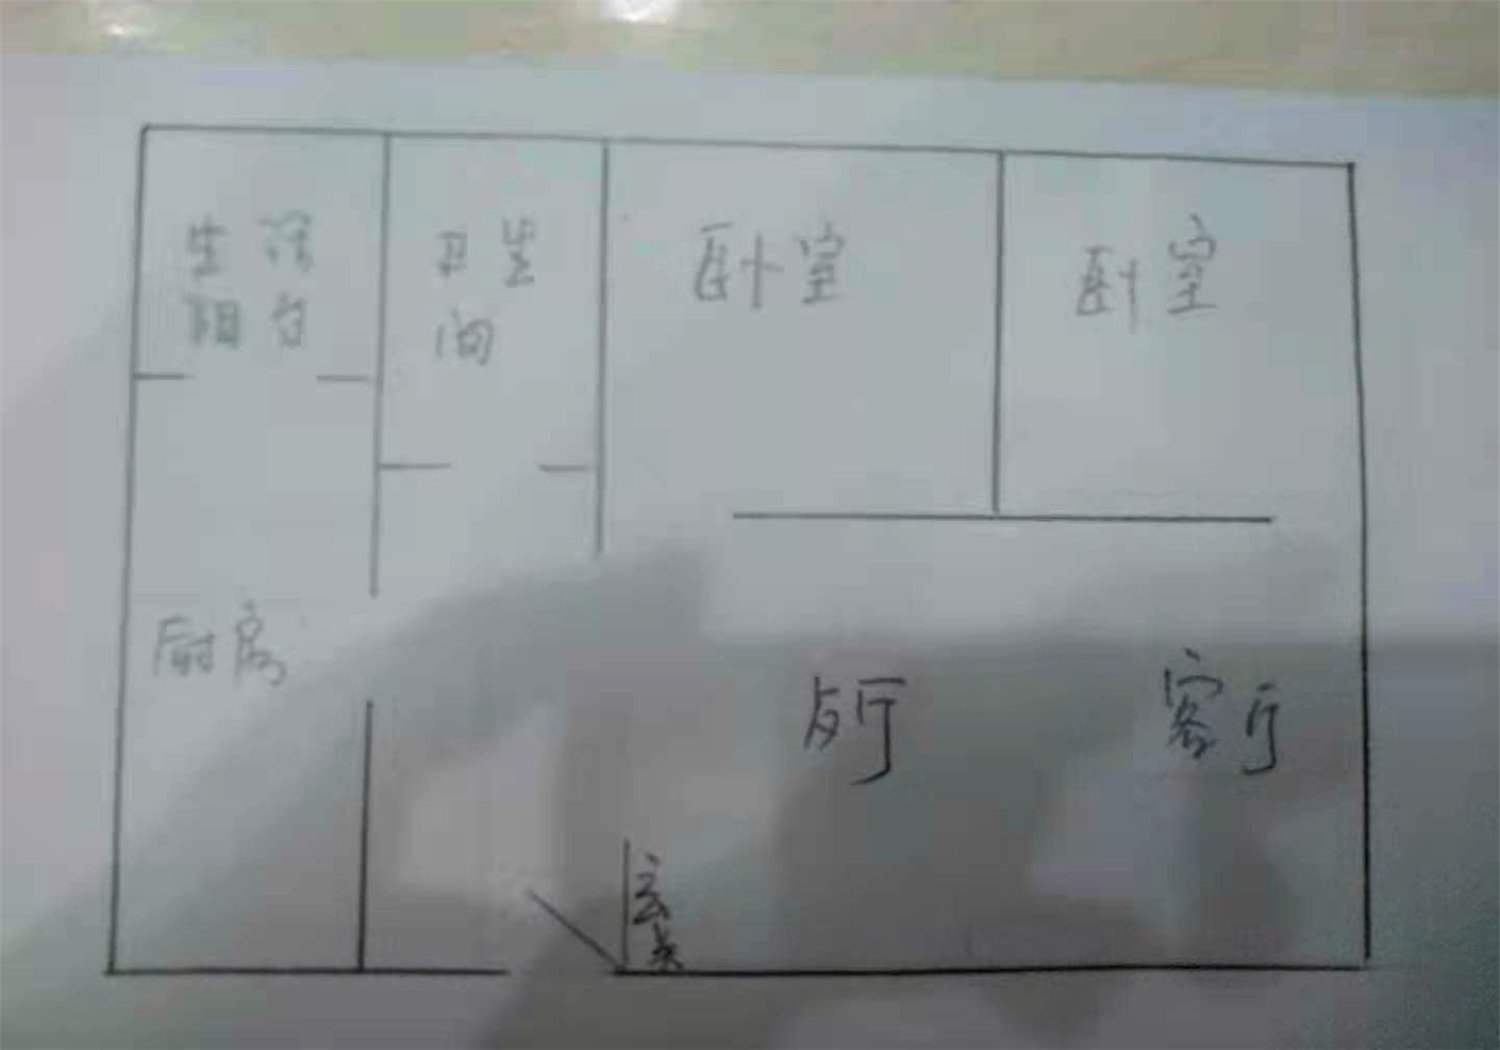 生活
阳台
卫生
间
卧室
卧室
厨房
歺厅
客厅
玄
关